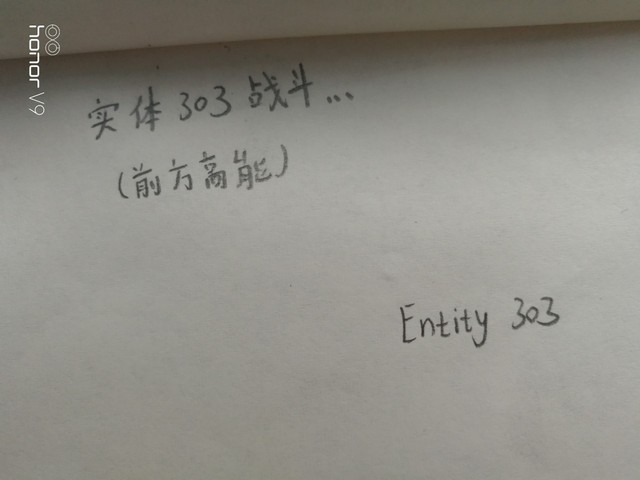 实体303战斗...
(前方高能)
Entity 303
honor V9